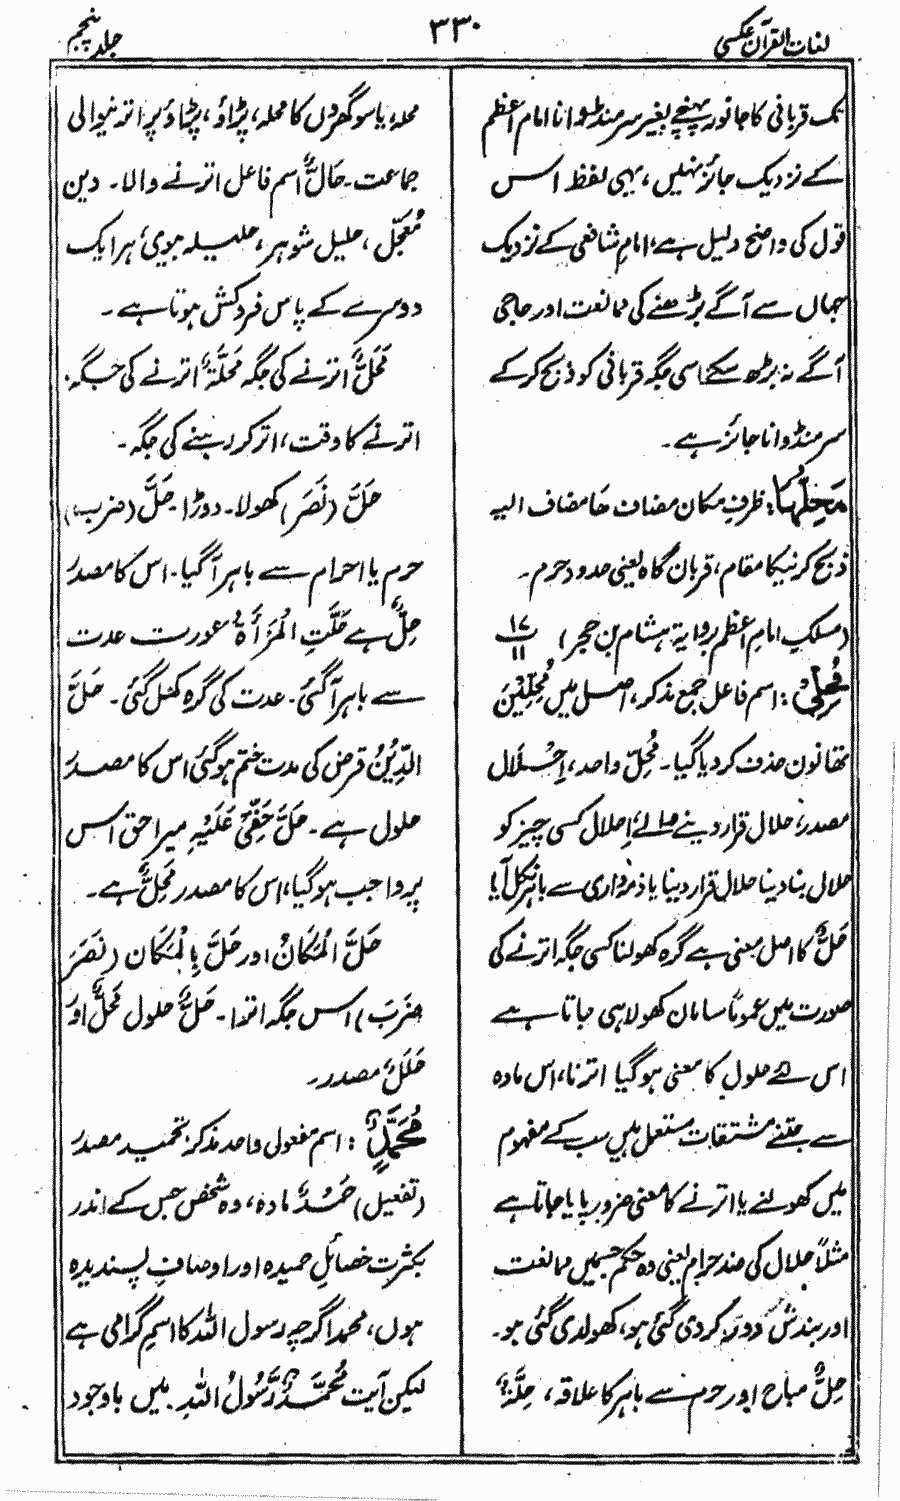 لغات القرآن عکسی
۳۳۰
جلد پنجم
تک قربانی کا جانور پہنچے بغیر سر منڈوانا امام اعظم
کے نزدیک جائز نہیں، یہی لفظ اس
قول کی واضح دلیل ہے، امام شافعی کے نزدیک
جہاں سے آگے بڑھنے کی ممانعت اور حاجی
آگے نہ بڑھ سکے اسی جگہ قربانی کو ذبح کر کے
سر منڈوانا جائز ہے۔
مَحِلُّہَا: ظرفِ مکان مضاف ھا مضاف الیہ
ذبح کرنیکا مقام، قربان گاہ یعنی حدود حرم۔
(مسلکِ امامِ اعظم بروایۃ ہشام بن حجر) ۱۷ ۱۱
مُحِلِّیْ: اسم فاعل جمع مذکر، اصل میں مُحِلِّیْنَ
تھا نون حذف کر دیا گیا۔ مُحِلّ واحد، اِحْلَال
مصدر، حلال قرار دینے والے، اِحلال کسی چیز کو
حلال بنا دینا حلال قرار دینا یا ذمہ داری سے باہر نکل آیا
حَلٌّ کا اصل معنی ہے گرہ کھولنا کسی جگہ اترنے کی
صورت میں عموماً سامان کھولا ہی جاتا ہے
اس لئے حلول کا معنی ہو گیا اترنا، اس مادہ
سے جتنے مشتقات مستعمل ہیں سب کے مفہوم
میں کھولنے یا اترنے کا معنی ضرور پایا جاتا ہے
مثلاً حلال کی ضد حرام یعنی وہ حکم جسمیں ممانعت
اور بندش دور کر دی گئی ہو، کھولدی گئی ہو۔
حِلٌّ مباح اور حرم سے باہر کا علاقہ، حِلَّۃٌ
محلہ، یا سو گھروں کا محلہ، پڑاؤ، پڑاؤ پر اترنیوالی
جماعت۔ حَالٌّ اسم فاعل اترنے والا۔ دین
مُعَجَّل، حلیل شوہر، حلیلہ بیوی، ہر ایک
دوسرے کے پاس فروکش ہوتا ہے۔
مَحَلٌّ اترنے کی جگہ مَحَلَّۃٌ اترنے کی جگہ،
اترنے کا وقت، اتر کر رہنے کی جگہ۔
حَلَّ (نَصَرَ) کھولا۔ دوڑا۔ حَلَّ (ضرب)
حرم یا احرام سے باہر آگیا۔ اس کا مصدر
حِلٌّ ہے حَلَّتِ الْمَرْأَۃُ عورت عدت
سے باہر آگئی۔ عدت کی گرہ کھل گئی۔ حَلَّ
الدَّیْنُ قرض کی مدت ختم ہو گئی اس کا مصدر
حلول ہے۔ حَلَّ حَقِّیْ عَلَیْہِ میرا حق اس
پر واجب ہو گیا، اس کا مصدر مَحِلٌّ ہے۔
حَلَّ الْمَکَانَ اور حَلَّ بِالْمَکَان (نَصَرَ
ضَرَبَ) اس جگہ اترا۔ حَلٌّ حلول مَحَلٌّ اور
حَلَلٌ مصدر۔
مُحَمَّدٌ: اسم مفعول واحد مذکر تحمید مصدر
(تفعیل) حَمْدٌ مادہ، وہ شخص جس کے اندر
بکثرت خصائلِ حمیدہ اور اوصافِ پسندیدہ
ہوں، محمد اگرچہ رسول اللہ کا اسمِ گرامی ہے
لیکن آیت مُحَمَّدٌ رَّسُوْلُ اللہِ میں باوجود